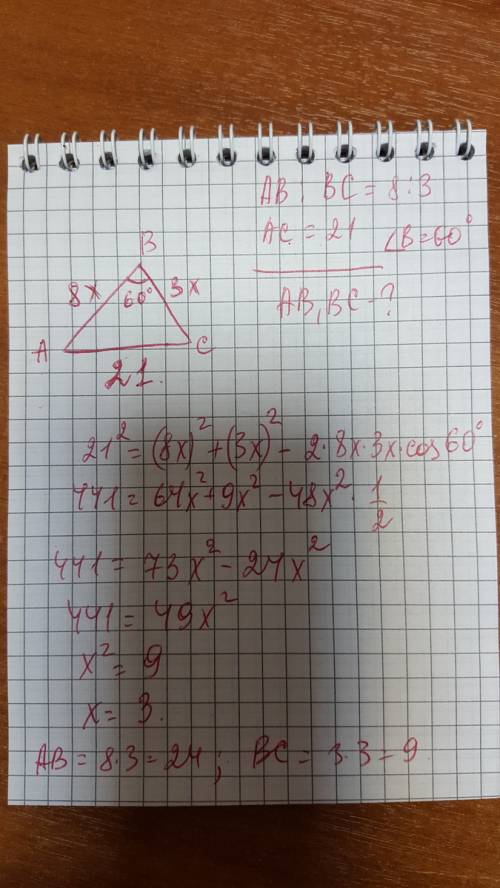 AB : BC = 8 : 3
AC = 21 ∠B = 60°
AB, BC - ?
B
8x 60° 3x
A C
21
21² = (8x)² + (3x)² - 2·8x·3x·cos60°
441 = 64x² + 9x² - 48x² · 1/2
441 = 73x² - 24x²
441 = 49x²
x² = 9
x = 3.
AB = 8·3 = 24 ; BC = 3·3 = 9